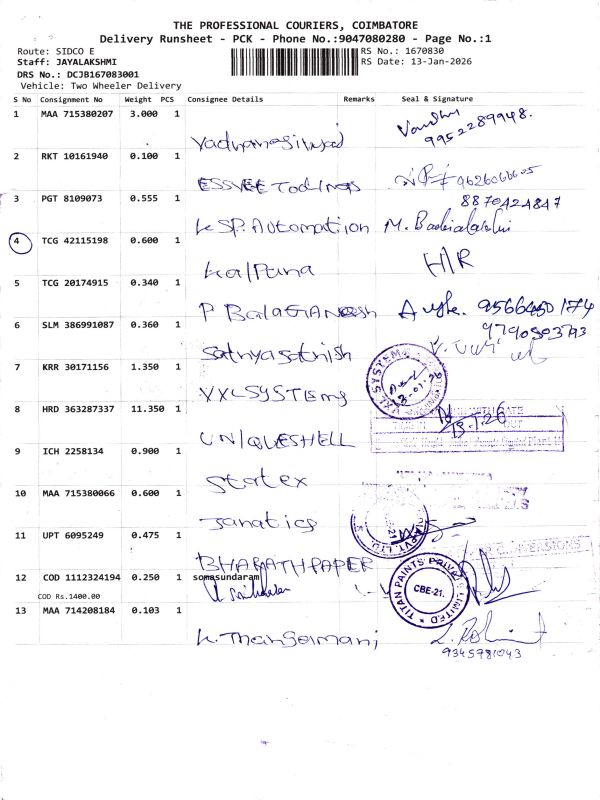 THE PROFESSIONAL COURIERS, COIMBATORE
Delivery Runsheet - PCK - Phone No.:9047080280 - Page No.:1
Route: SIDCO E
RS No.: 1670830
Staff: JAYALAKSHMI
RS Date: 13-Jan-2026
DRS No.: DCJB167083001
Vehicle: Two Wheeler Delivery
S No Consignment No Weight PCS Consignee Details Remarks Seal & Signature
1 MAA 715380207 3.000 1
9952289948.
2 RKT 10161940 0.100 1
ESSVEE Toolings
3 PGT 8109073 0.555 1
8870424847
KSP. Automation M.
4 TCG 42115198 0.600 1
Kalpana H/R
5 TCG 20174915 0.340 1
P Bala GANessh
6 SLM 386991087 0.360 1
Sathyasathish
7 KRR 30171156 1.350 1
VXLSYSTEMS
VXL SYSTEMS
8 HRD 363287337 11.350 1
UNIQUESHELL
9 ICH 2258134 0.900 1
Statex
10 MAA 715380066 0.600 1
Janatics
11 UPT 6095249 0.475 1
CONVERSIONS
BHARATHPAPER
12 COD 1112324194 0.250 1 somasundaram
TITAN PAINTS PRIVATE LIMITED
CBE-21.
COD Rs.1400.00
13 MAA 714208184 0.103 1
K. Thangamani
9345781043